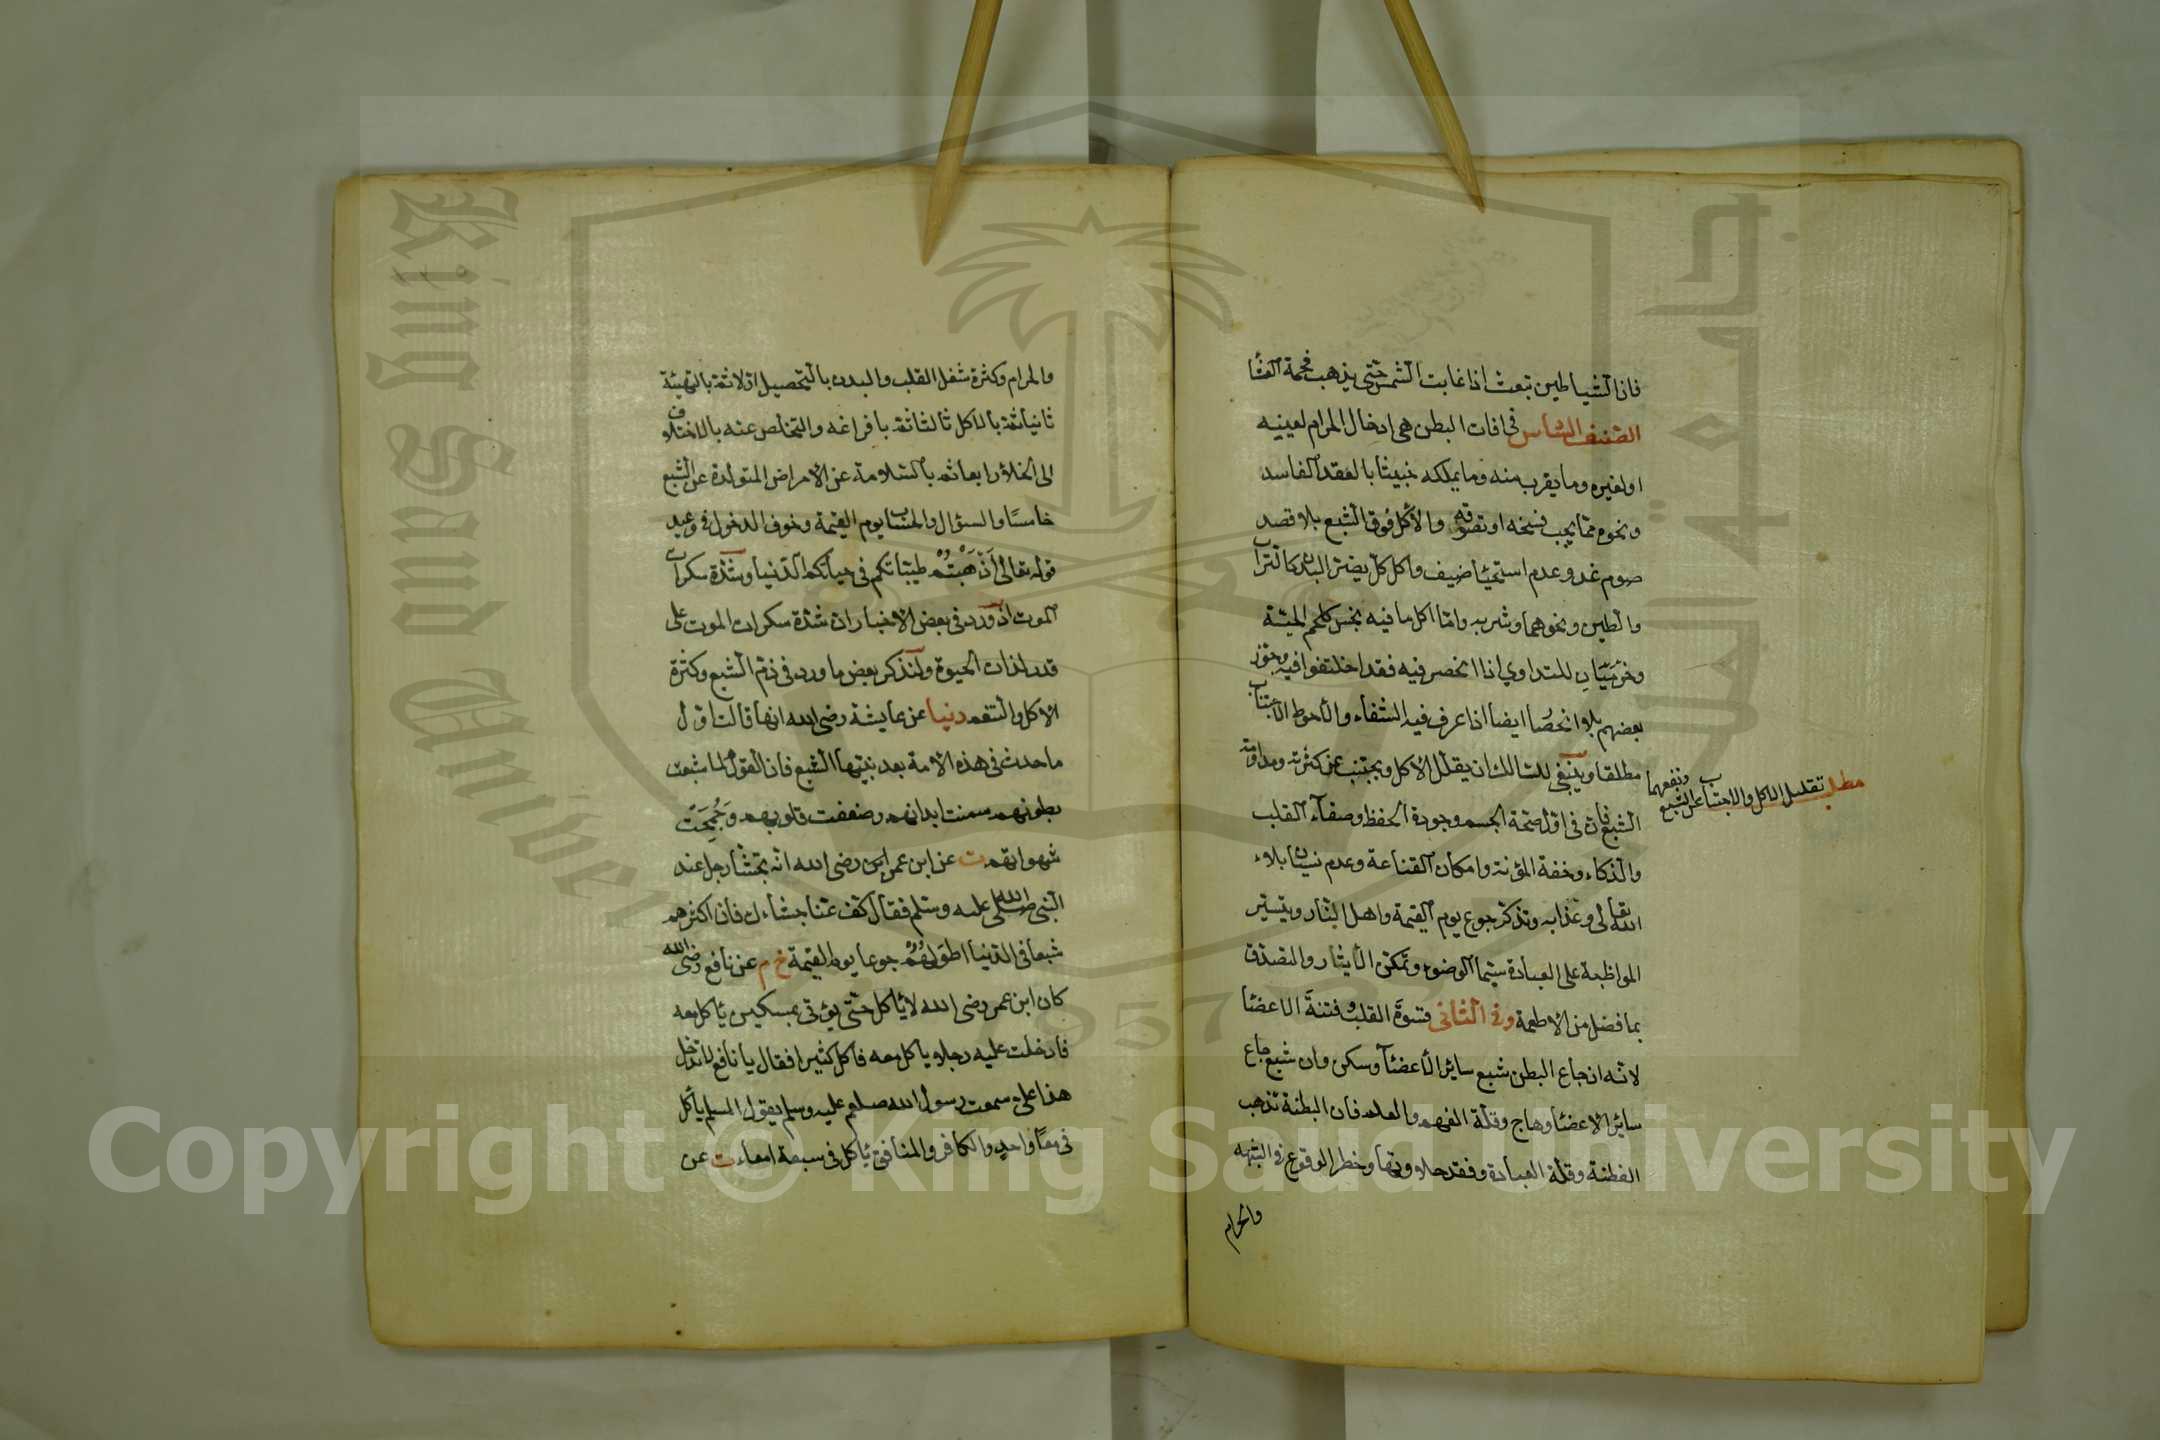 فان الشياطين تبعث اذا غابت الشمس حتى يذهب فحمة العشا
الصنف السادس في افات البطن هي ادخال الحرام لعينه
او لغيره وما يقرب منه وما يملكه خبيثا بالعقد الفاسد
ونحوه مما يجب فسخه او تصدقه والاكل فوق الشبع بلا قصد
صوم غد وعدم استحيا ضيف واكل كل يضر البدن كالتراب
والطين ونحوهما وشربه واما اكل ما فيه نجس كلحم الميتة
وخمر للتداوي اذا انحصر فيه فقد اختلفوا فيه وجوز
بعضهم بلا انحصار ايضا اذا عرف فيه الشفاء والاحوط الاجتناب
مطلقا وينبغي للسالك ان يقلل الاكل ويجتنب عن كثرته ومداومة
مطلب تقليل الاكل والاجتناب عن الشبع ونفعهما
الشبع فان في اقل صحة الجسم وجودة الحفظ وصفاء القلب
والذكاء وخفة المؤنة وامكان القناعة وعدم نسيان بلاء
الله تعالى وعذابه وتذكر جوع يوم القيمة واهل النار وتيسير
المواظبة على العبادة سيما الوضوء وتمكن الايثار والتصدق
بما فضل من الاطعمة وفي الثاني قسوة القلب وفتنة الاعضا
لانه ان جاع البطن شبع سائر الاعضا وسكن وان شبع جاع
سائر الاعضا وهاج وقلة الفهم والعلم فان البطنة تذهب
الفطنة وقلة العبادة وفقد حلاوتها وخطر الوقوع في الشبهة
والحرام
والحرام وكثرة شغل القلب والبدن بالتحصيل اولا ثم بالتهيئة
ثانيا ثم بالاكل ثالثا ثم بافراغه والتخلص عنه بالاختلاف
الى الخلاء رابعا ثم بالسلامة عن الامراض المتولدة عن الشبع
خامسًا والسؤال والحساب يوم القيمة وخوف الدخول في وعيد
قوله تعالى اَذْهَبْتُمْ طيباتكم في حياتكم الدنيا وشدة سكرات
الموت اذ ورد في بعض الاخبار ان شدة سكرات الموت على
قدر لذات الحيوة ولنذكر بعض ما ورد في ذم الشبع وكثرة
الاكل والتنعم دنيا عن عايشة رضى الله انها قالت اول
ما حدث في هذه الامة بعد نبيها الشبع فان القوم لما شبعت
بطونهم سمنت ابدانهم وضعفت قلوبهم وجَمَحَت
شهواتهم ت عن ابن عمر رضى الله انه تجشأ رجل عند
النبي صلى الله عليه وسلم فقال كف عنا جشاءك فان اكثرهم
شبعا في الدنيا اطولهم جوعا يوم القيمة خ م عن نافع رضى الله
كان ابن عمر رضى الله لا يأكل حتى يؤتى بمسكين يأكل معه
فادخلت عليه رجلا ياكل معه فاكل كثيرا فقال يا نافع لا تدخل
هذا على سمعت رسول الله صلعم عليه وسلم يقول المسلم يأكل
في معًا واحد والكافر والمنافق يأكل في سبعة امعاء ت عن
King Saud University
جامعة الملك سعود
1957
Copyright © King Saud University